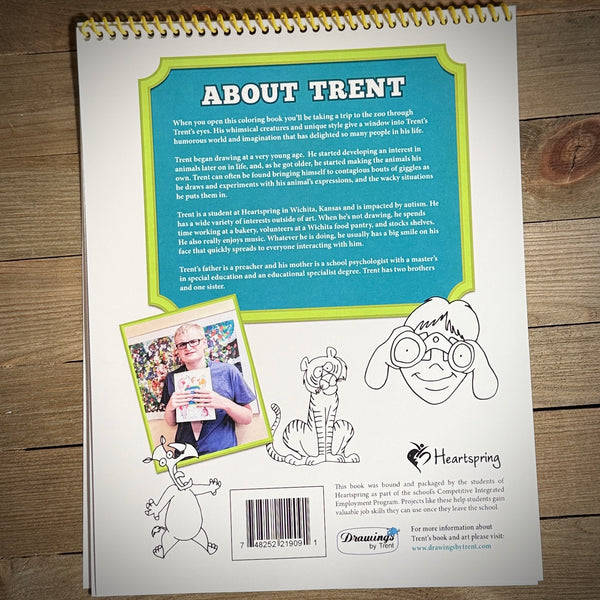 ABOUT TRENT
When you open this coloring book you'll be taking a trip to the zoo through
Trent's eyes. His whimsical creatures and unique style give a window into Trent's
humorous world and imagination that has delighted so many people in his life.
Trent began drawing at a very young age. He started developing an interest in
animals later on in life, and, as he got older, he started making the animals his
own. Trent can often be found bringing himself to contagious bouts of giggles as
he draws and experiments with his animal's expressions, and the wacky situations
he puts them in.
Trent is a student at Heartspring in Wichita, Kansas and is impacted by autism. He
has a wide variety of interests outside of art. When he's not drawing, he spends
time working at a bakery, volunteers at a Wichita food pantry, and stocks shelves.
He also really enjoys music. Whatever he is doing, he usually has a big smile on his
face that quickly spreads to everyone interacting with him.
Trent's father is a preacher and his mother is a school psychologist with a master's
in special education and an educational specialist degree. Trent has two brothers
and one sister.
Heartspring
This book was bound and packaged by the students of
Heartspring as part of the school's Competitive Integrated
Employment Program. Projects like these help students gain
valuable job skills they can use once they leave the school.
7 48252 21909 1
Drawings
by Trent
For more information about
Trent's book and art please visit:
www.drawingsbytrent.com